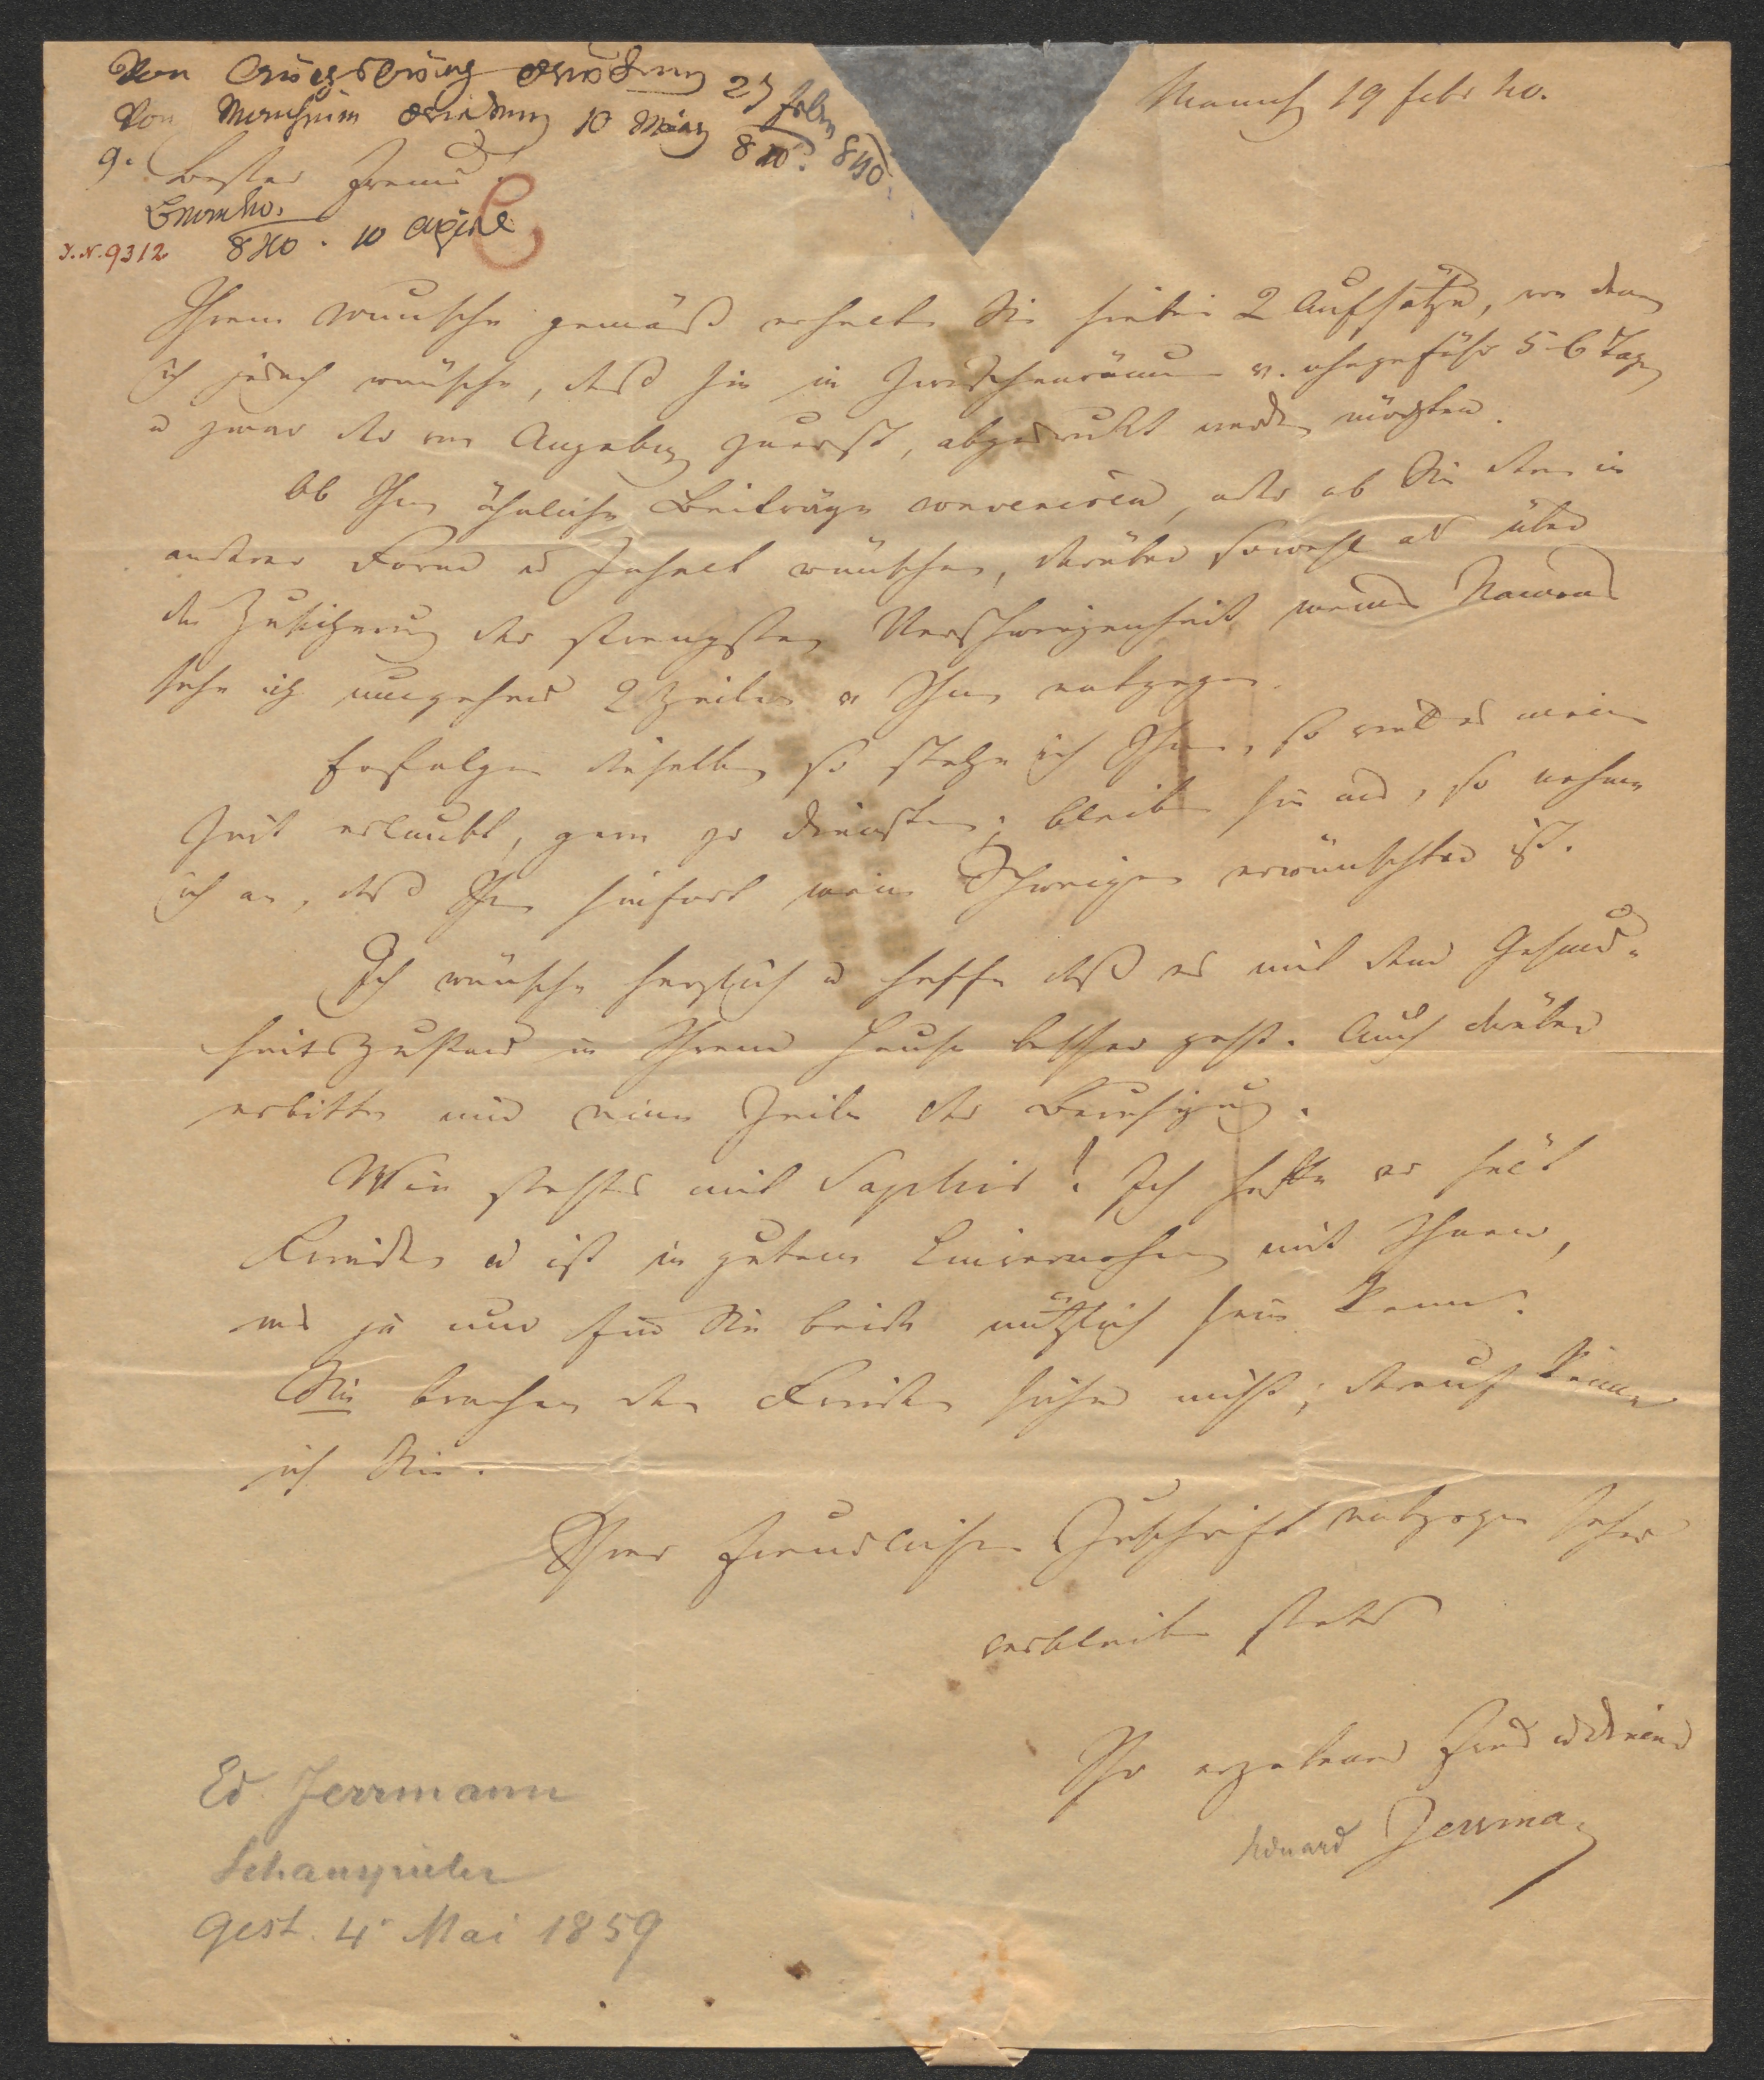 Von Augsburg 29 Febr
Von Manheim 10 März 840. 840
Mannh 19 febr 40.
9.
Bester Freund!
840 . 10 April
J.N. 9312
Ihrem Wunsche gemäß erhalten Sie hiebei 2 Aufsätze, von denen
ich jedoch wünsche, daß sie in Zwischenräumen v. ohngefähr 5-6 Tagen
u zwar der von Angeby zuerst, abgedruckt werden möchten.
Ob Ihnen ähnliche Beiträge conveniren, oder ob Sie dere in
anderer Form u Inhalt wünschen, darüber sowohl als über
die Zusicherung der strengsten Verschwiegenheit meines Namens
sehe ich umgehend 2 Zeilen v Ihnen entgegen.
Erfolgen dieselben so stehe ich Ihnen, so viel es meine
Zeit erlaubt, gern zu Diensten; bleiben sie aus, so nehme
ich an, daß Ihnen hinfort mein Schweigen erwünschter ist.
Ich wünsche herzlich u hoffe daß es mit dem Gesund-
heitszustand in Ihrem Hause besser geht. Auch darüber
erbitte mir eine Zeile der Beruhigung.
Wie stehts mit Saphir? Ich hoffe er hält
Frieden u ist in gutem Einvernehmen mit Ihnen,
was ja nur für Sie beide nützlich sein kann.
Sie brechen den Frieden sicher nicht; darauf kenne
ich Sie.
Ihrer freundlichen Zuschrift entgegen sehend
verbleibe stets
Ihr ergebener Freund u Diener
Eduard Jerrmann
Ed. Jerrmann
Schauspieler
gest. 4. Mai 1859